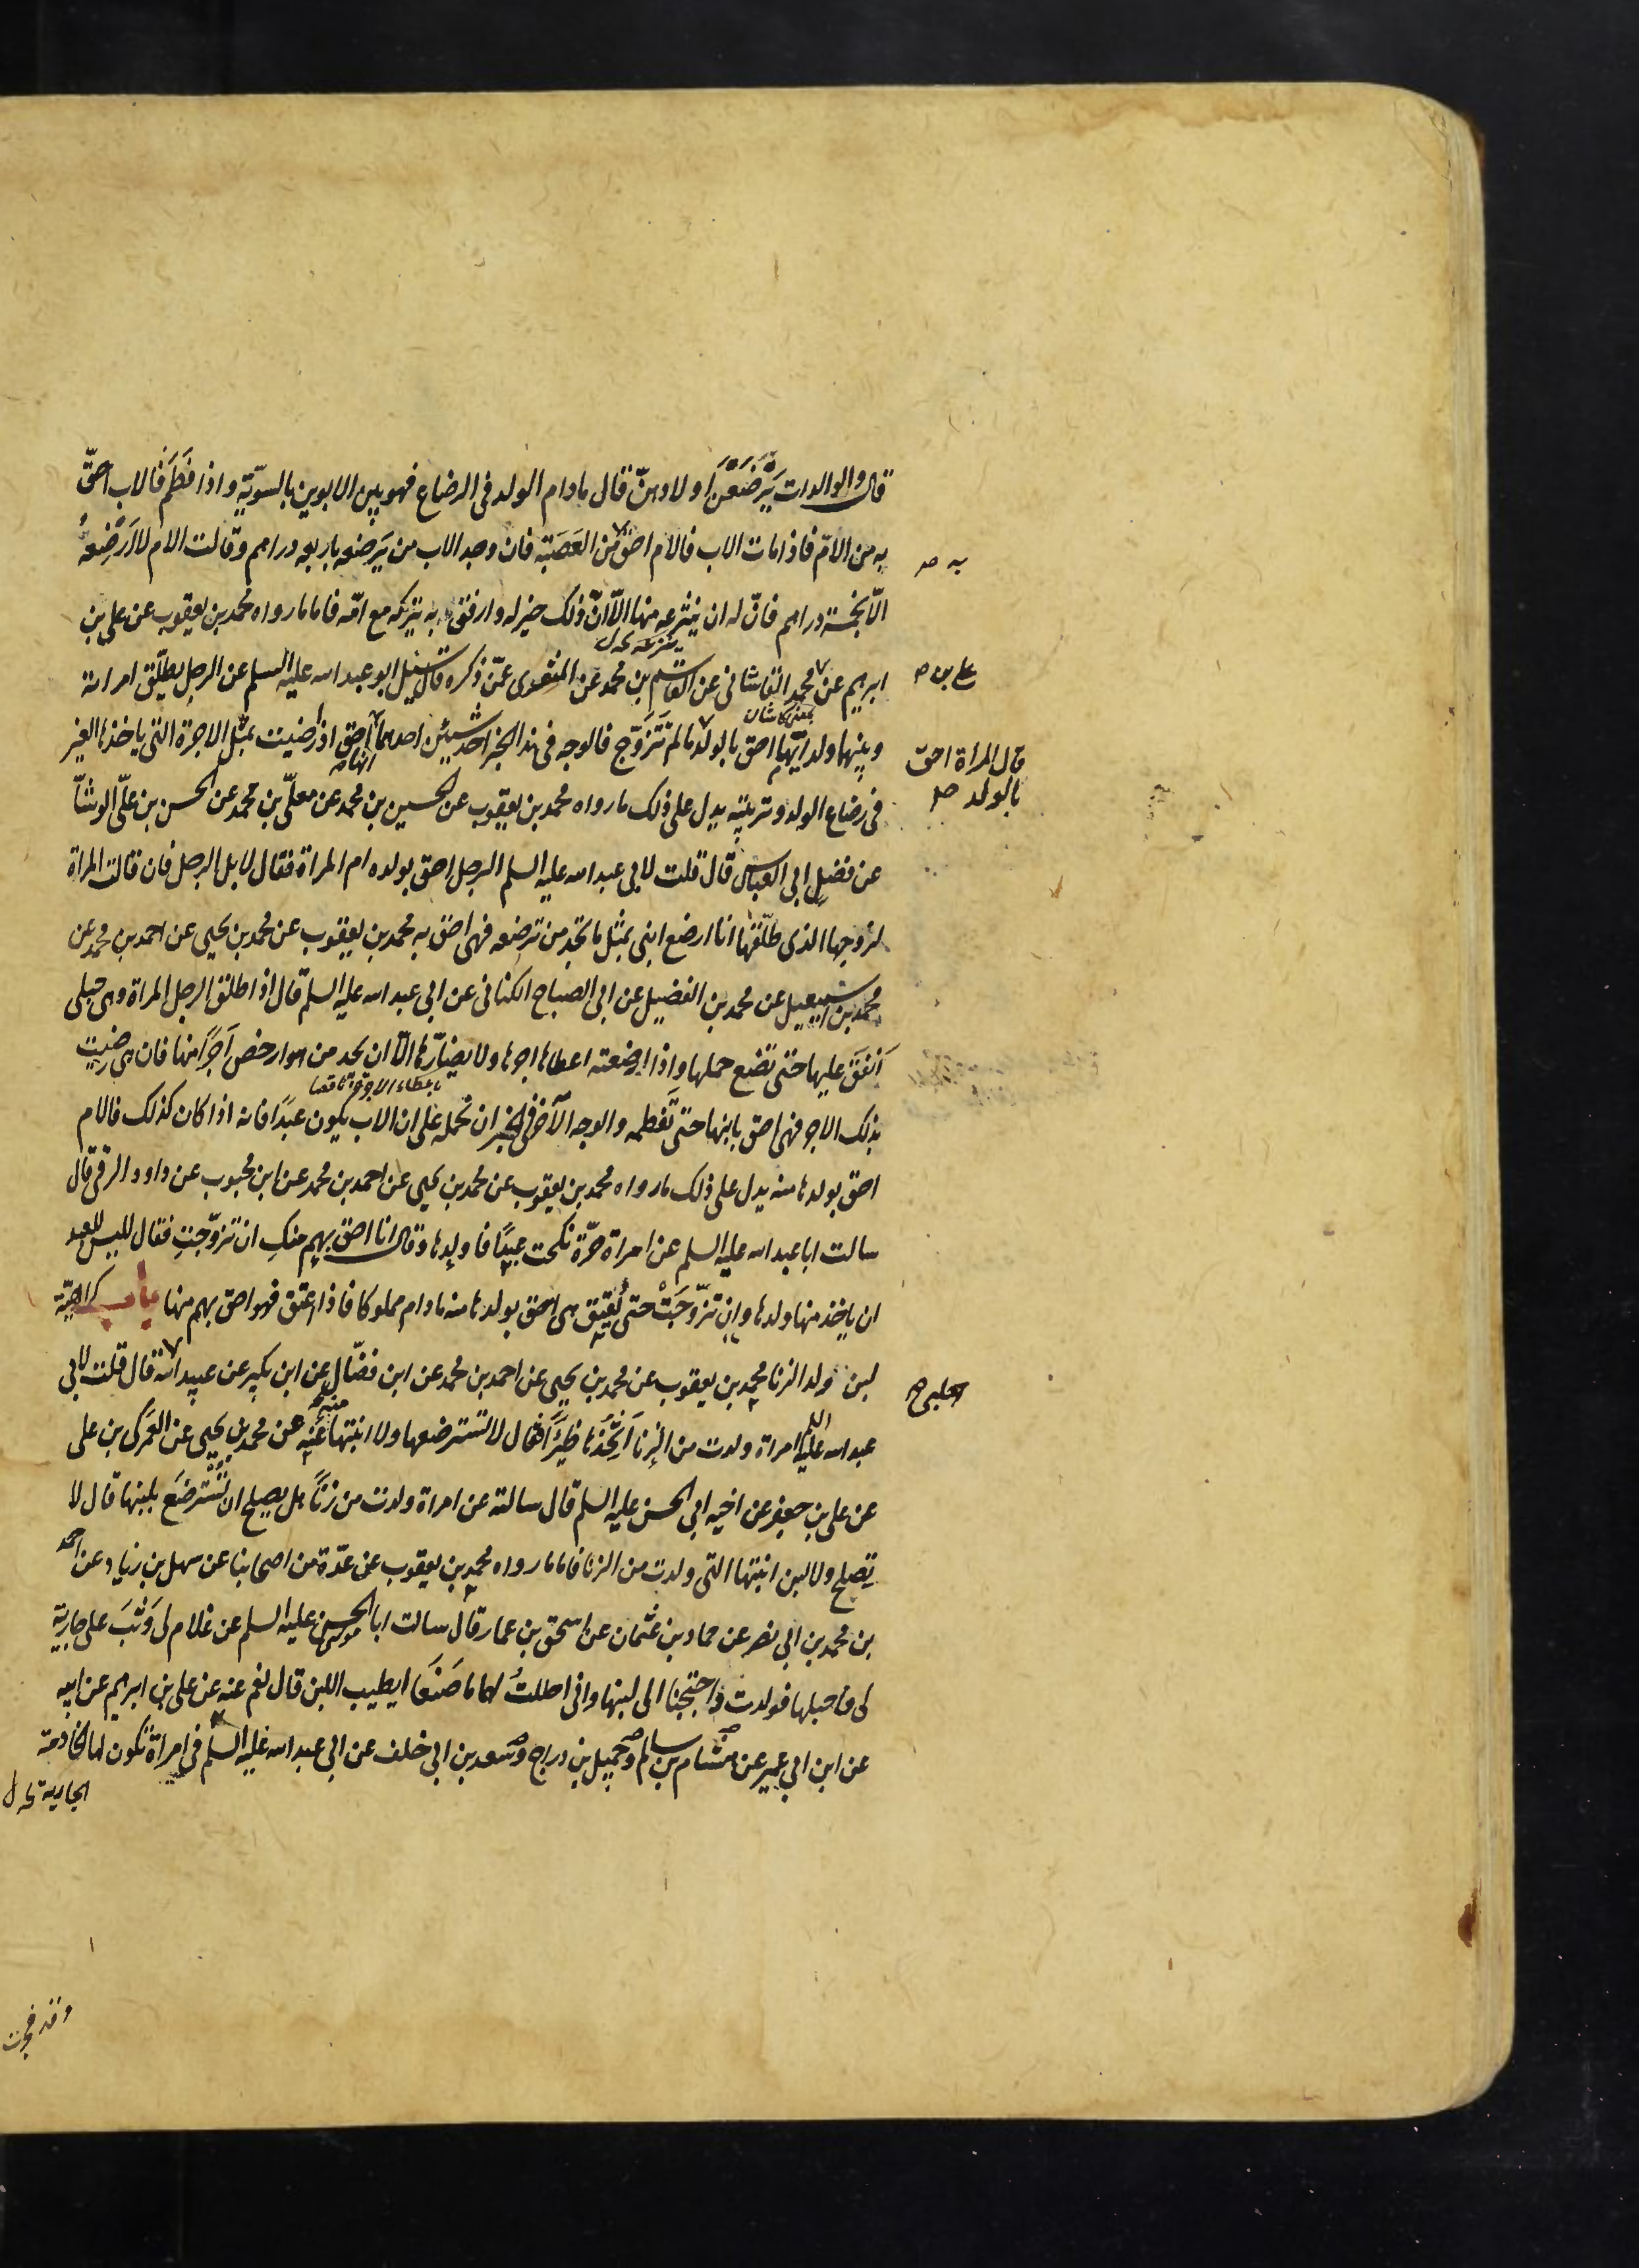 قال والوالدات يرضعن اولادهن قال مادام الولد فى الرضاع فهو بين الابوين بالسوية واذا فطم فالاب احق
به من الام فاذا مات الاب فالام احق من العصبة فان وجد الاب من يرضعه باربعه دراهم وقالت الام لا ارضعه
به صح
الا بخمسة دراهم فان له ان ينتزعه منها الا ان ذلك خير له وارفق به يتركه مع امه فاما ما رواه محمد بن يعقوب عن على بن
ينزعه خ ل
ابرهيم عن محمد القاشانى عن القاسم بن محمد عن المنقرى عمن ذكره قال سئل ابو عبد الله عليه السلم عن الرجل يطلق امراته
على بن ص
وبينهما ولد ايهما احق بالولد ما لم تتزوج فالوجه فى هذا الخبر احد شيئين احدهما انها احق اذا رضيت بمثل الاجرة التى ياخذها الغير
قال المراة احق
بالولد صح
فى رضاع الولد وتربيته يدل على ذلك ما رواه محمد بن يعقوب عن الحسين بن محمد عن معلى بن محمد عن الحسن بن على الوشا
عن فضل ابى العباس قال قلت لابى عبد الله عليه السلم الرجل احق بولده ام المراة فقال لا بل الرجل فان قالت المراة
لزوجها الذى طلقها انا ارضع ابنى بمثل ما تجد من ترضعه فهى احق به محمد بن يعقوب عن محمد بن يحيى عن احمد بن محمد عن
محمد بن اسمعيل عن محمد بن الفضيل عن ابى الصباح الكنانى عن ابى عبد الله عليه السلم قال اذا طلق الرجل المراة وهى حبلى
انفق عليها حتى تضع حملها واذا ارضعته اعطاها اجرها ولا يضارها الا ان يجد من هو ارخص اجرا منها فان هى رضيت
باعطاء الاجرة ناقصا
بذلك الاجر فهى احق بابنها حتى تفطمه والوجه الآخر فى الخبر ان نحمله على ان الاب يكون عبدا فانه اذا كان كذلك فالام
احق بولدها منه يدل على ذلك ما رواه محمد بن يعقوب عن محمد بن يحيى عن احمد بن محمد عن ابن محبوب عن داود الرقى قال
سالت ابا عبد الله عليه السلم عن امراة حرة نكحت عبدا فاولدها وقال انا احق بهم منك ان تزوجت فقال ليس للعبد
ان ياخذ منها ولدها وان تزوجت حتى يعتق هى احق بولدها منه مادام مملوكا فاذا اعتق فهو احق بهم منها باب كراهية
لبن ولد الزنا محمد بن يعقوب عن محمد بن يحيى عن احمد بن محمد عن ابن فضال عن ابن بكير عن عبيد الله قال قلت لابى
الحلبى صح
عبد الله عليه السلم امراة ولدت من الزنا اتخذها ظئرا فقال لا تسترضعها ولا ابنتها عنه عن محمد بن يحيى عن العمركى بن على
عن على بن جعفر عن اخيه ابى الحسن عليه السلم قال سالته عن امراة ولدت من زنا هل يصلح ان تسترضع بلبنها قال لا
تصلح ولا لبن ابنتها التى ولدت من الزنا فاما ما رواه محمد بن يعقوب عن عدة من اصحابنا عن سهل بن زياد عن احمد
بن محمد بن ابى نصر عن حماد بن عثمان عن اسحق بن عمار قال سالت ابا الحسن عليه السلم عن غلام لى وثب على جارية
لى فاحبلها فولدت واحتجنا الى لبنها وانى احللت لهما ما صنعا ايطيب اللبن قال نعم عنه عن على بن ابرهيم عن ابيه
عن ابن ابى عمير عن هشام بن سالم وجميل بن دراج وسعد بن ابى خلف عن ابى عبد الله عليه السلم فى امراة تكون لها الخادمة
الجارية خ ل
وقد فجرت